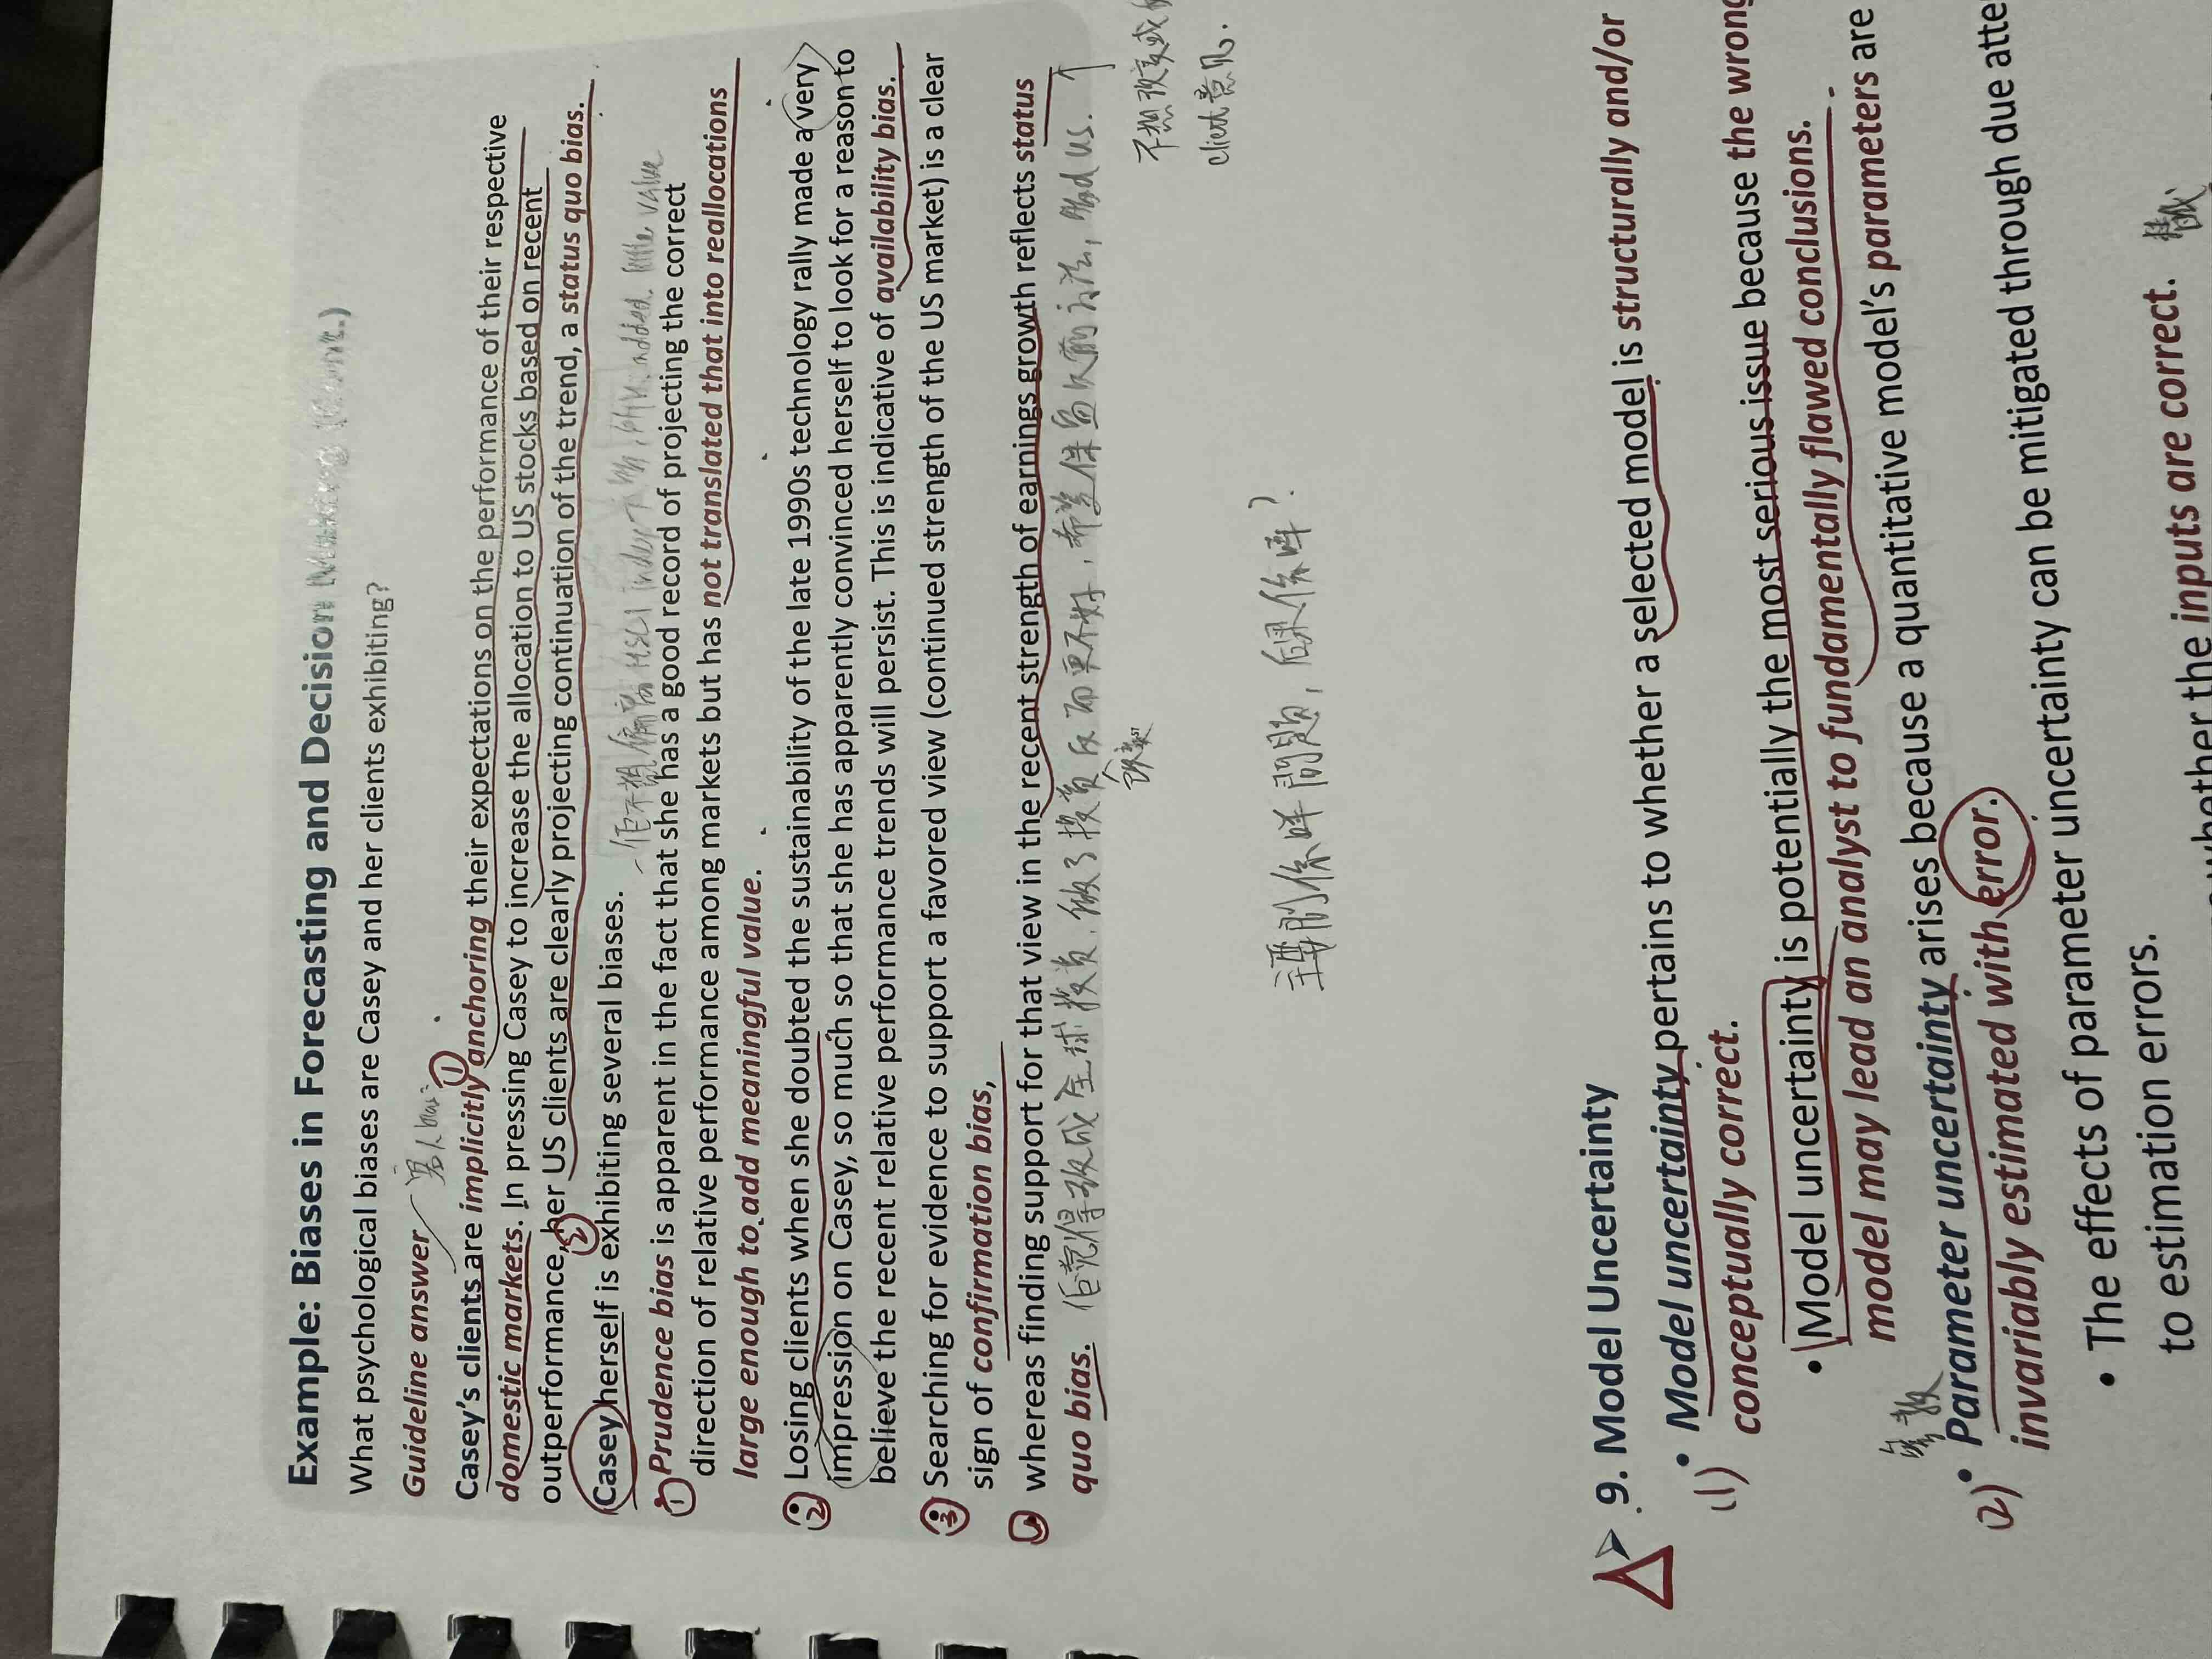 Example: Biases in Forecasting and Decision Making (Cont.)
What psychological biases are Casey and her clients exhibiting?
Guideline answer
客人bias:
Casey's clients are implicitly ① anchoring their expectations on the performance of their respective
domestic markets. In pressing Casey to increase the allocation to US stocks based on recent
outperformance, ② her US clients are clearly projecting continuation of the trend, a status quo bias.
Casey herself is exhibiting several biases.
MSCI index added little value
① Prudence bias is apparent in the fact that she has a good record of projecting the correct
direction of relative performance among markets but has not translated that into reallocations
large enough to add meaningful value.
② Losing clients when she doubted the sustainability of the late 1990s technology rally made a very
impression on Casey, so much so that she has apparently convinced herself to look for a reason to
believe the recent relative performance trends will persist. This is indicative of availability bias.
③ Searching for evidence to support a favored view (continued strength of the US market) is a clear
sign of confirmation bias,
④ whereas finding support for that view in the recent strength of earnings growth reflects status
quo bias. 佢覺得改成全球投資,做了投資反而更不好,希望保留以前方法,
不想改變或
client意見.
主要前係咩問題,結果係咩?
9. Model Uncertainty
(1) • Model uncertainty pertains to whether a selected model is structurally and/or
conceptually correct.
• Model uncertainty is potentially the most serious issue because the wrong
model may lead an analyst to fundamentally flawed conclusions.
參數
(2) • Parameter uncertainty arises because a quantitative model's parameters are
invariably estimated with error.
• The effects of parameter uncertainty can be mitigated through due
to estimation errors.
whether the inputs are correct.